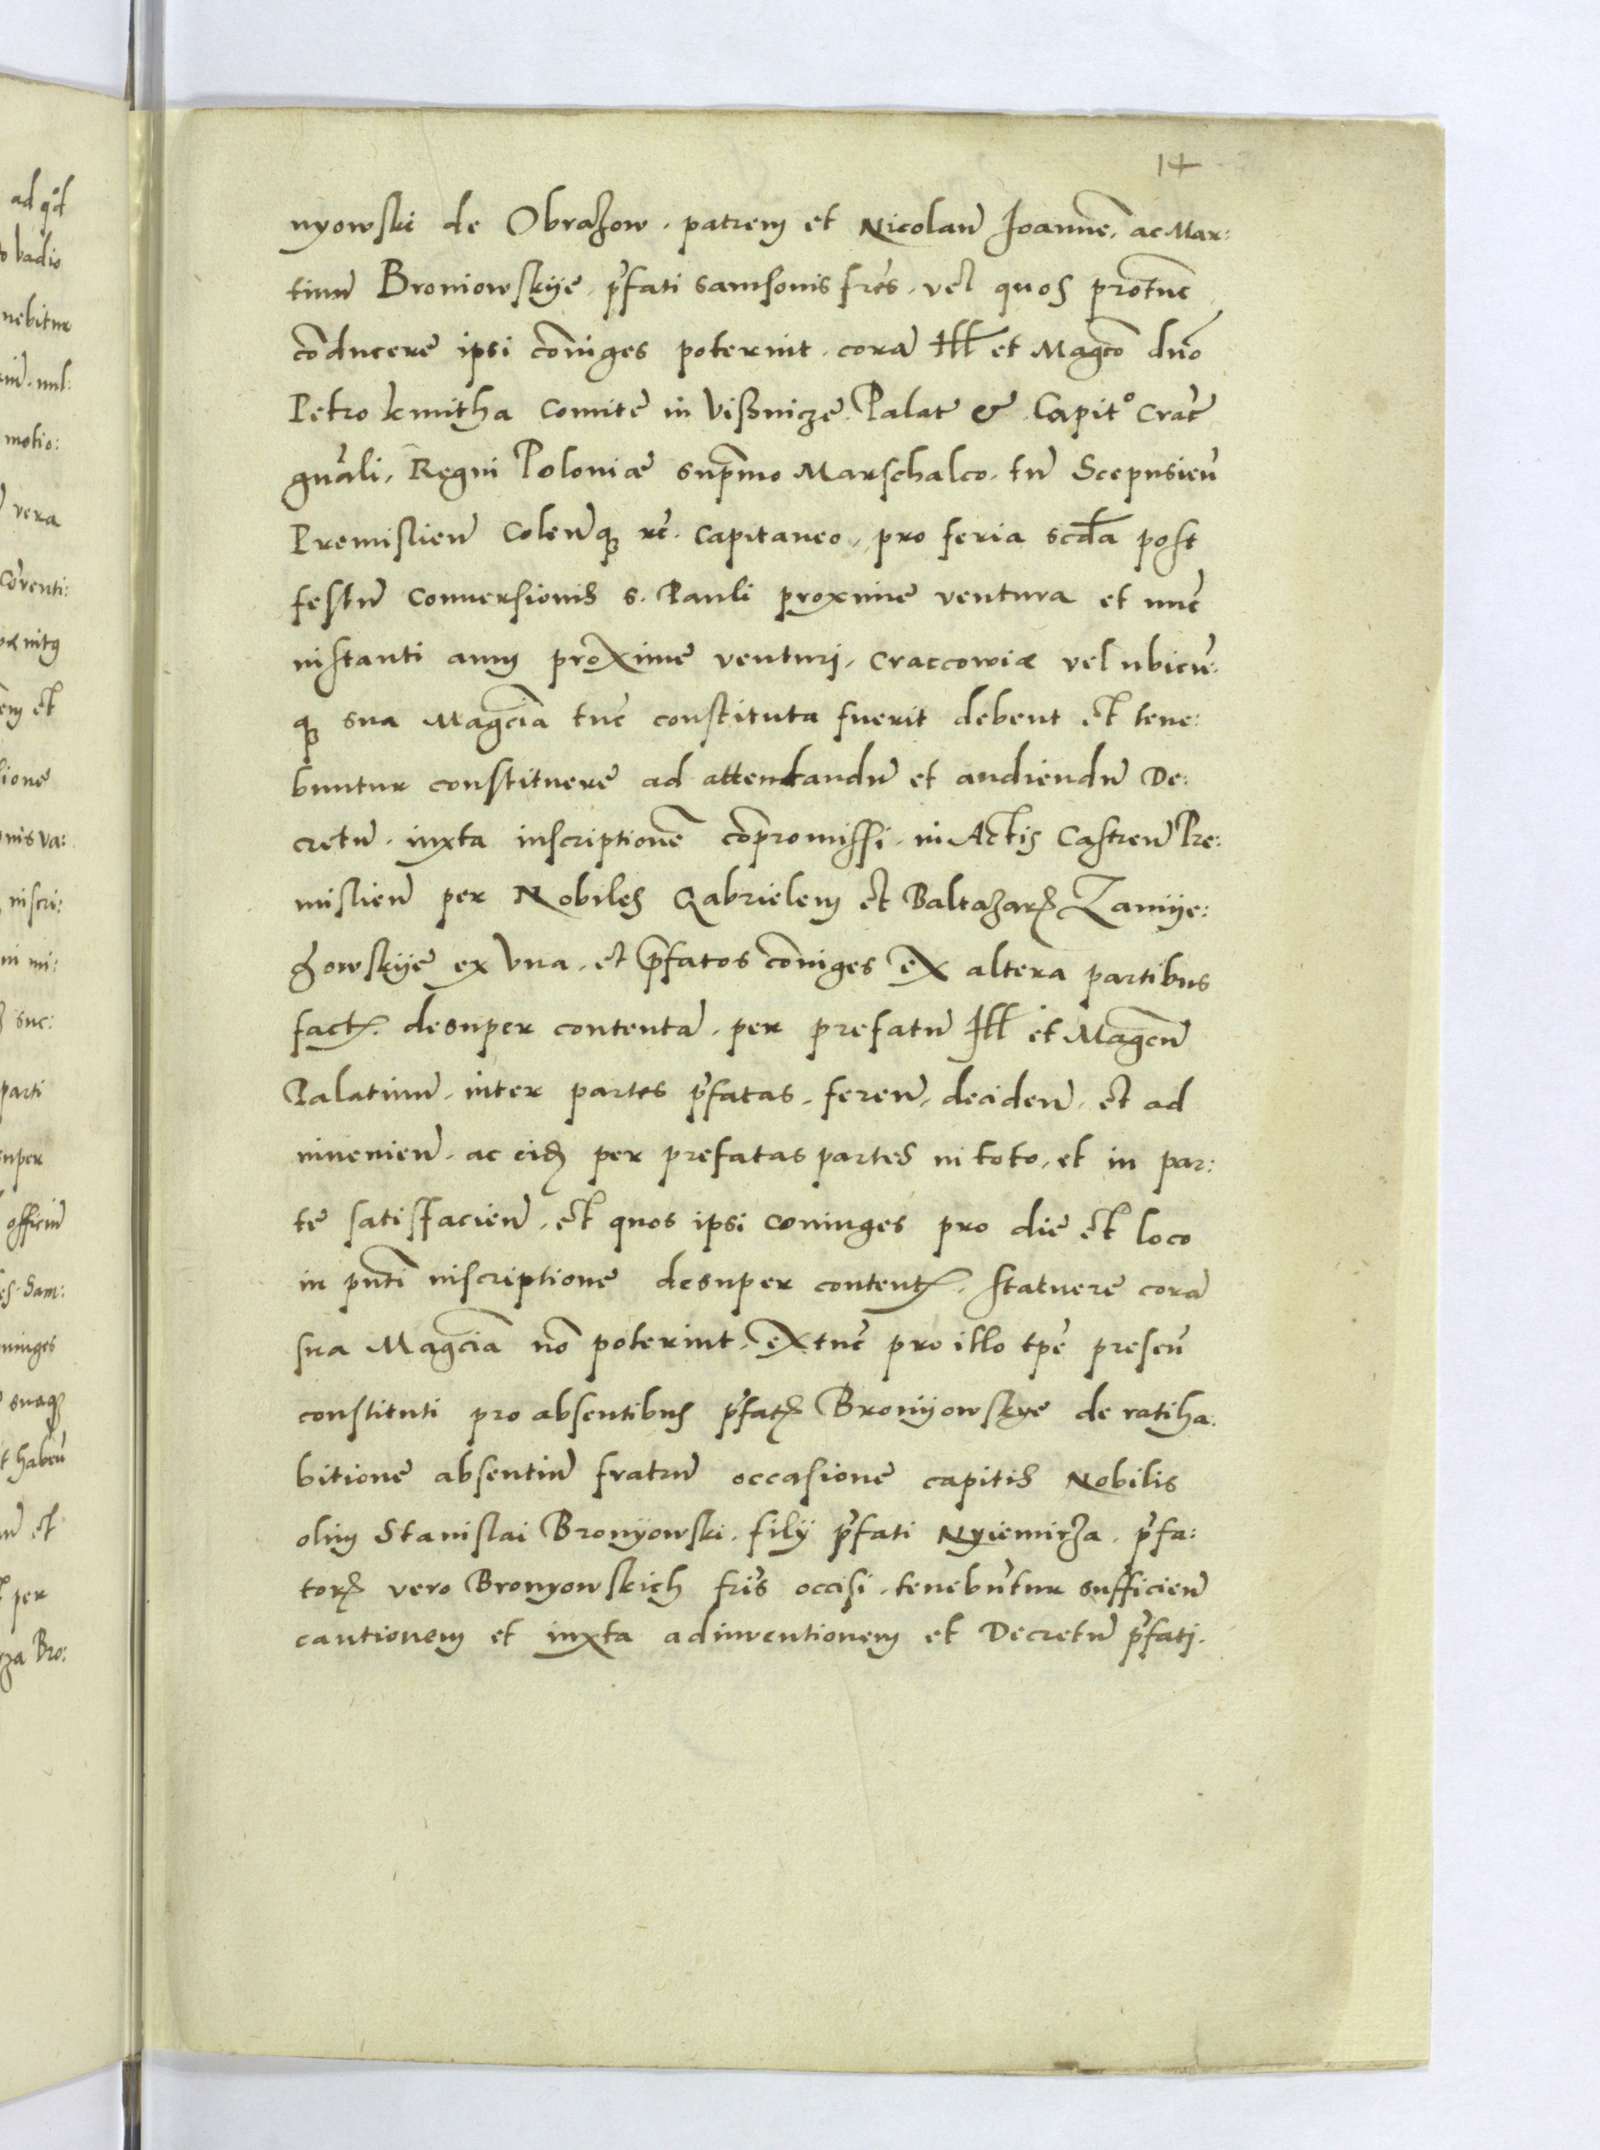 14
nyowski de Obrazow . patrem et Nicolaū Joannē . ac Mar:
tinū Broniowskye . pr̄fati Samsonis fr̄es . vel quos protūc
cōducere ipsi cōiuges poterint . corā Ill et Magco dn̄o
Petro kmitha Comite in Vißnicze . Palat & Capit° Crac̄
gn̄ali . Regni Poloniæ supr̄mo Marschalco . tū Scepusien̄
Premislien̄ Colen̄q₃ rc̄ . Capitaneo . pro feria scd̄a post
festū Conuersionis S. Pauli proxime ventura et nūc
instanti anni proxime venturi . Craccowiæ vel ubicū:
q₃ sua Magcīa tūc constituta fuerit debent et tene:
buntur constituere ad attentandū et audiendū De:
cretū . iuxta inscriptionē cōpromissi . in Actis Castren̄ Pre:
mislien̄ per Nobiles Gabrielem et Baltazarē Zamye:
howskye ex vna . et pr̄fatos cōiuges ex altera partibus
fact desuper contentā . per prefatū Ill et Magcū
Palatinū . inter partes pr̄fatas . feren̄ . deciden̄ . et ad
inuenien̄ . ac eid per prefatas partes in toto . et in par:
te satisfacien̄ . et quos ipsi coniuges pro die et loco
in pn̄ti inscriptione desuper content . statuere corā
sua Magcīa nō poterint . extūc pro illo tpē presen̄
constituti pro absentibus pr̄fat Bronyowskye de ratiha:
bitione absentiū fratrū occasione capitis Nobilis
olim Stanislai Bronyowski . filij pr̄fati Nyemirza . pr̄fa:
tor vero Bronyowskich fr̄is occisi . tenebūtur sufficien̄
cautionem et iuxta adinuentionem et Decretū pr̄fati .